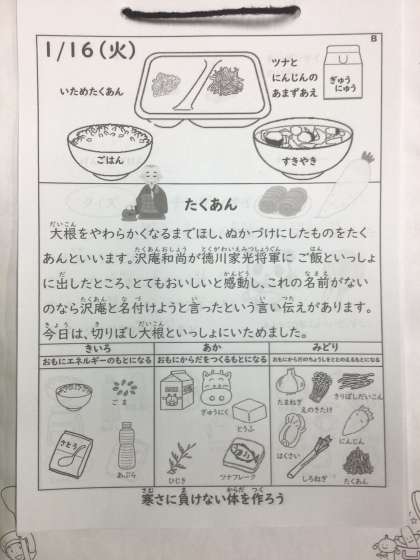 B
1/16(火)
いためたくあん
ツナと
にんじんの
あまずあえ
ぎゅう
にゅう
ごはん
すきやき
たくあん
大根をやわらかくなるまでほし、ぬかづけにしたものをたく
あんといいます。沢庵和尚が徳川家光将軍に ご飯といっしょ
に出したところ、とてもおいしいと感動し、これの名前がない
のなら沢庵と名付けようと言ったという言い伝えがあります。
今日は、切りぼし大根といっしょにいためました。
きいろ
あか
みどり
おもにエネルギーのもとになる
おもにからだをつくるもとになる
おもにからだのちょうしをととのえるもとになる
ごま
さとう
あぶら
ぎゅうにく
とうふ
ひじき
ツナフレーク
たまねぎ
えのきたけ
きりぼしだいこん
はくさい
にんじん
しろねぎ
たくあん
寒さに負けない体を作ろう